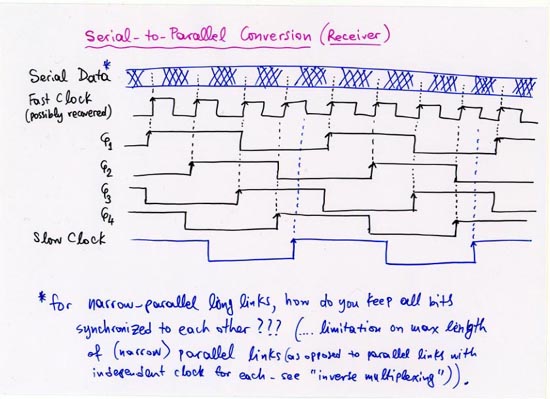 Serial-to-Parallel Conversion (Receiver)
Serial Data*
Fast Clock
(possibly recovered)
φ1
φ2
φ3
φ4
Slow Clock
*for narrow-parallel long links, how do you keep all bits
synchronized to each other??? (.... limitation on max length
of (narrow) parallel links (as opposed to parallel links with
independent clock for each - see "inverse multiplexing")).